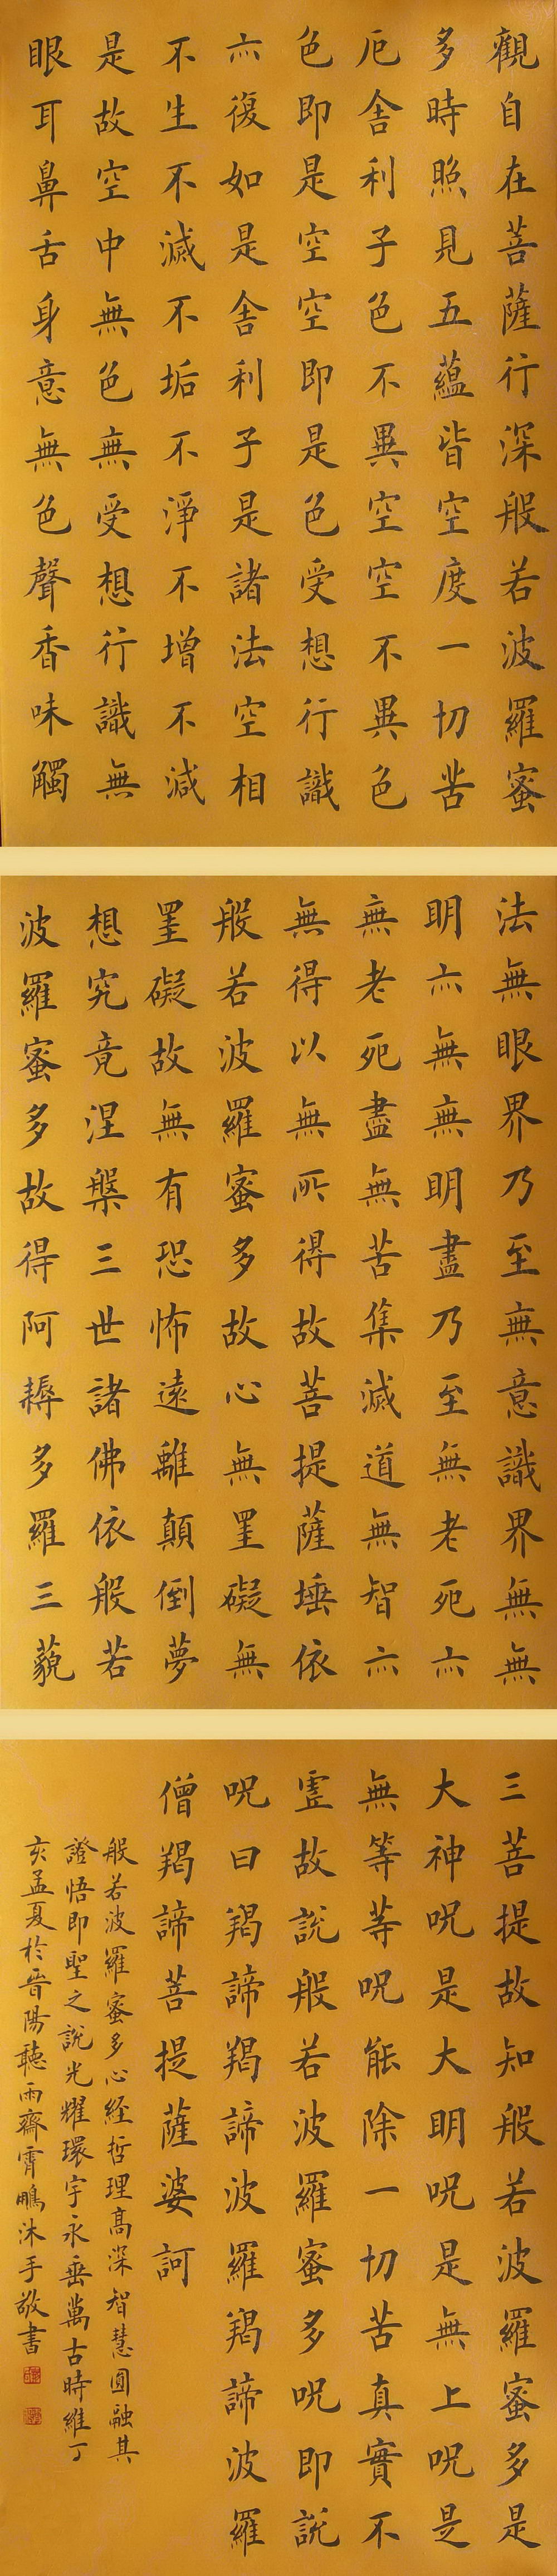 觀自在菩薩行深般若波羅蜜
多時照見五蘊皆空度一切苦
厄舍利子色不異空空不異色
色即是空空即是色受想行識
亦復如是舍利子是諸法空相
不生不滅不垢不淨不增不減
是故空中無色無受想行識無
眼耳鼻舌身意無色聲香味觸
法無眼界乃至無意識界無無
明亦無無明盡乃至無老死亦
無老死盡無苦集滅道無智亦
無得以無所得故菩提薩埵依
般若波羅蜜多故心無罣礙無
罣礙故無有恐怖遠離顛倒夢
想究竟涅槃三世諸佛依般若
波羅蜜多故得阿耨多羅三藐
三菩提故知般若波羅蜜多是
大神咒是大明咒是無上咒是
無等等咒能除一切苦真實不
虛故說般若波羅蜜多咒即說
咒曰羯諦羯諦波羅羯諦波羅
僧羯諦菩提薩婆訶
般若波羅蜜多心經哲理高深智慧圓融其
證悟即聖之說光耀環宇永垂萬古時維丁
亥孟夏於晉陽聽雨齋霄鵬沐手敬書